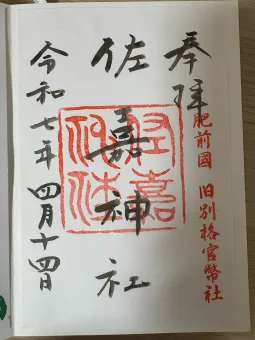 奉拝
肥前國 旧別格官幣社
佐嘉神社
佐嘉神社
令和七年 四月十四日